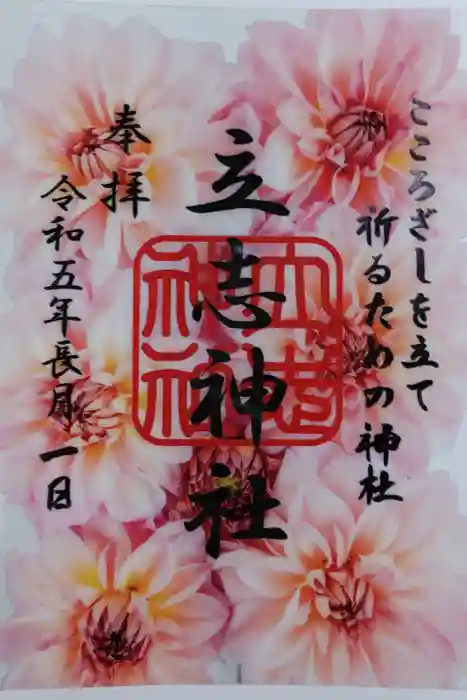 こころざしを立て
祈るための神社
立志神社
奉拝
令和五年長月一日
立志神社